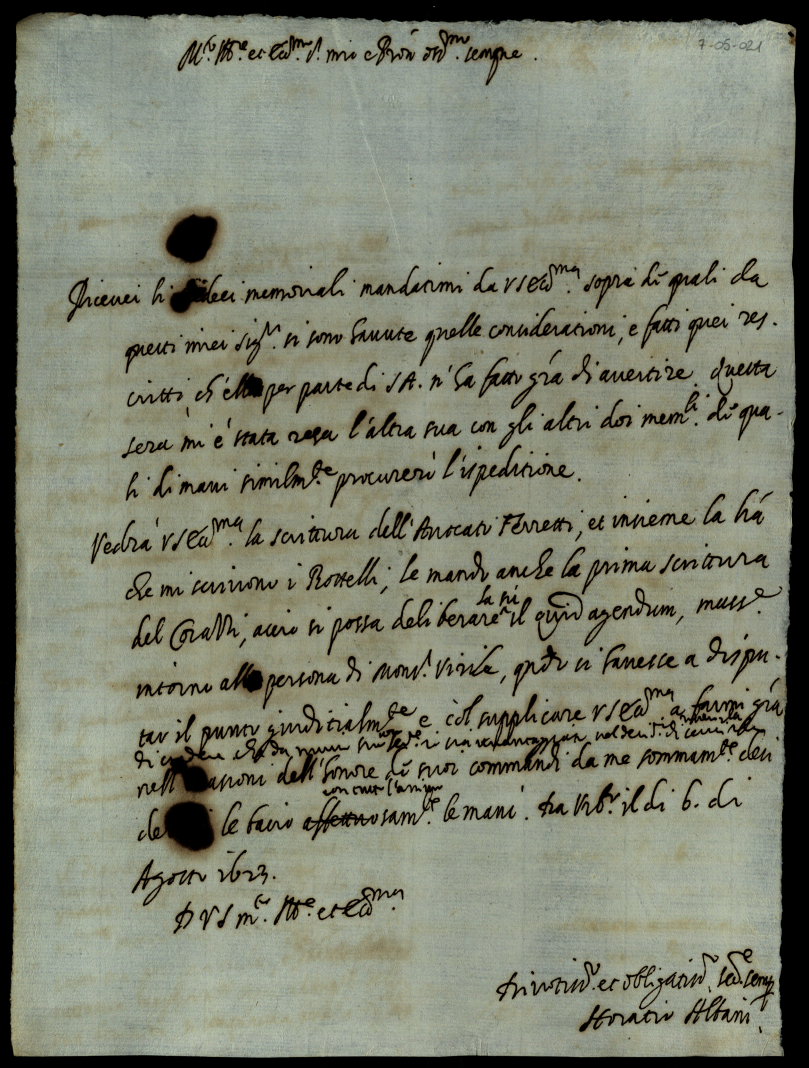 7-05-021
M.to Ill.re et Ecc.mo S.r mio e Pron oss.mo sempre.
Ricevei li memoriali mandatimi da VSEcc.ma sopra de quali da
questi miei Sig.ri si sono havute quelle considerationi, e fatti quei res-
critti ch'ella per parte di SA. n'ha fatto gra di avertire. Questa
sera mi è stata resa l'altra sua con gli altri doi mem.li de qua-
li dimani similm.te procurerò l'ispeditione.
Vedrà VSEcc.ma la scrittura dell'Avocato Ferretti, et insieme la
che mi scrivono i Rottelli, le mando anche la prima scrittura
del acciò si possa deliberare il quid agendum, mass.e
intorno alla persona di Mons.r qndo si havesse a dispu-
tar il punto giuditialm.te e col supplicare VSEcc.ma a farmi gra
di credere che
nell' dell'honore de suoi commandi da me sommam.te desi
de le bacio affettuosam.te le mani. Da Urb.o il di 6. di
con tutto l'animo
Agosto 1623.
D VS m.to Ill.e et Ecc.ma
Devotiss.o et obligatiss.o Se.re semp.
Horatio Albani